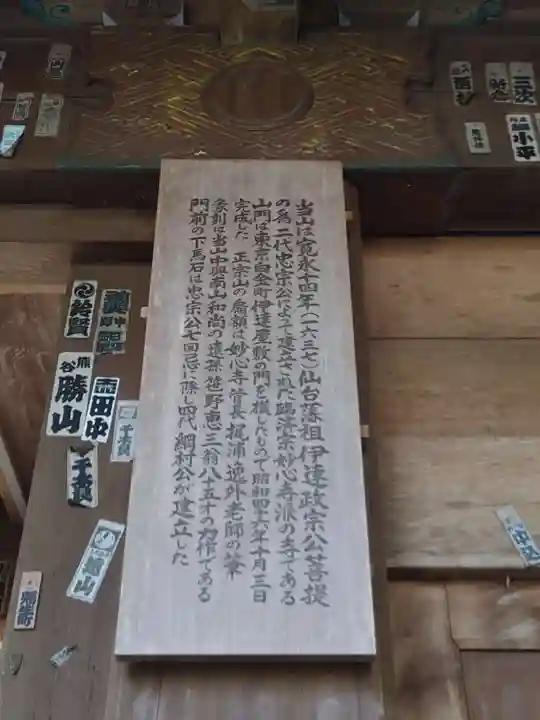 当山は寛永十四年(一六三七)仙台藩祖伊達政宗公菩提
の為二代忠宗公によって建立された臨済宗妙心寺派の寺である
山門は東京白金町伊達屋敷の門を模したもので昭和四十六年十月三日
完成した 正宗山の扁額は妙心寺管長梶浦逸外老師の筆
彫刻は当山中興南山和尚の遺孫笹野恵三翁八十五才の力作である
門前の下馬石は忠宗公七回忌に際し四代綱村公が建立した
三次
小平
鈴賢
熊谷
勝山
田中